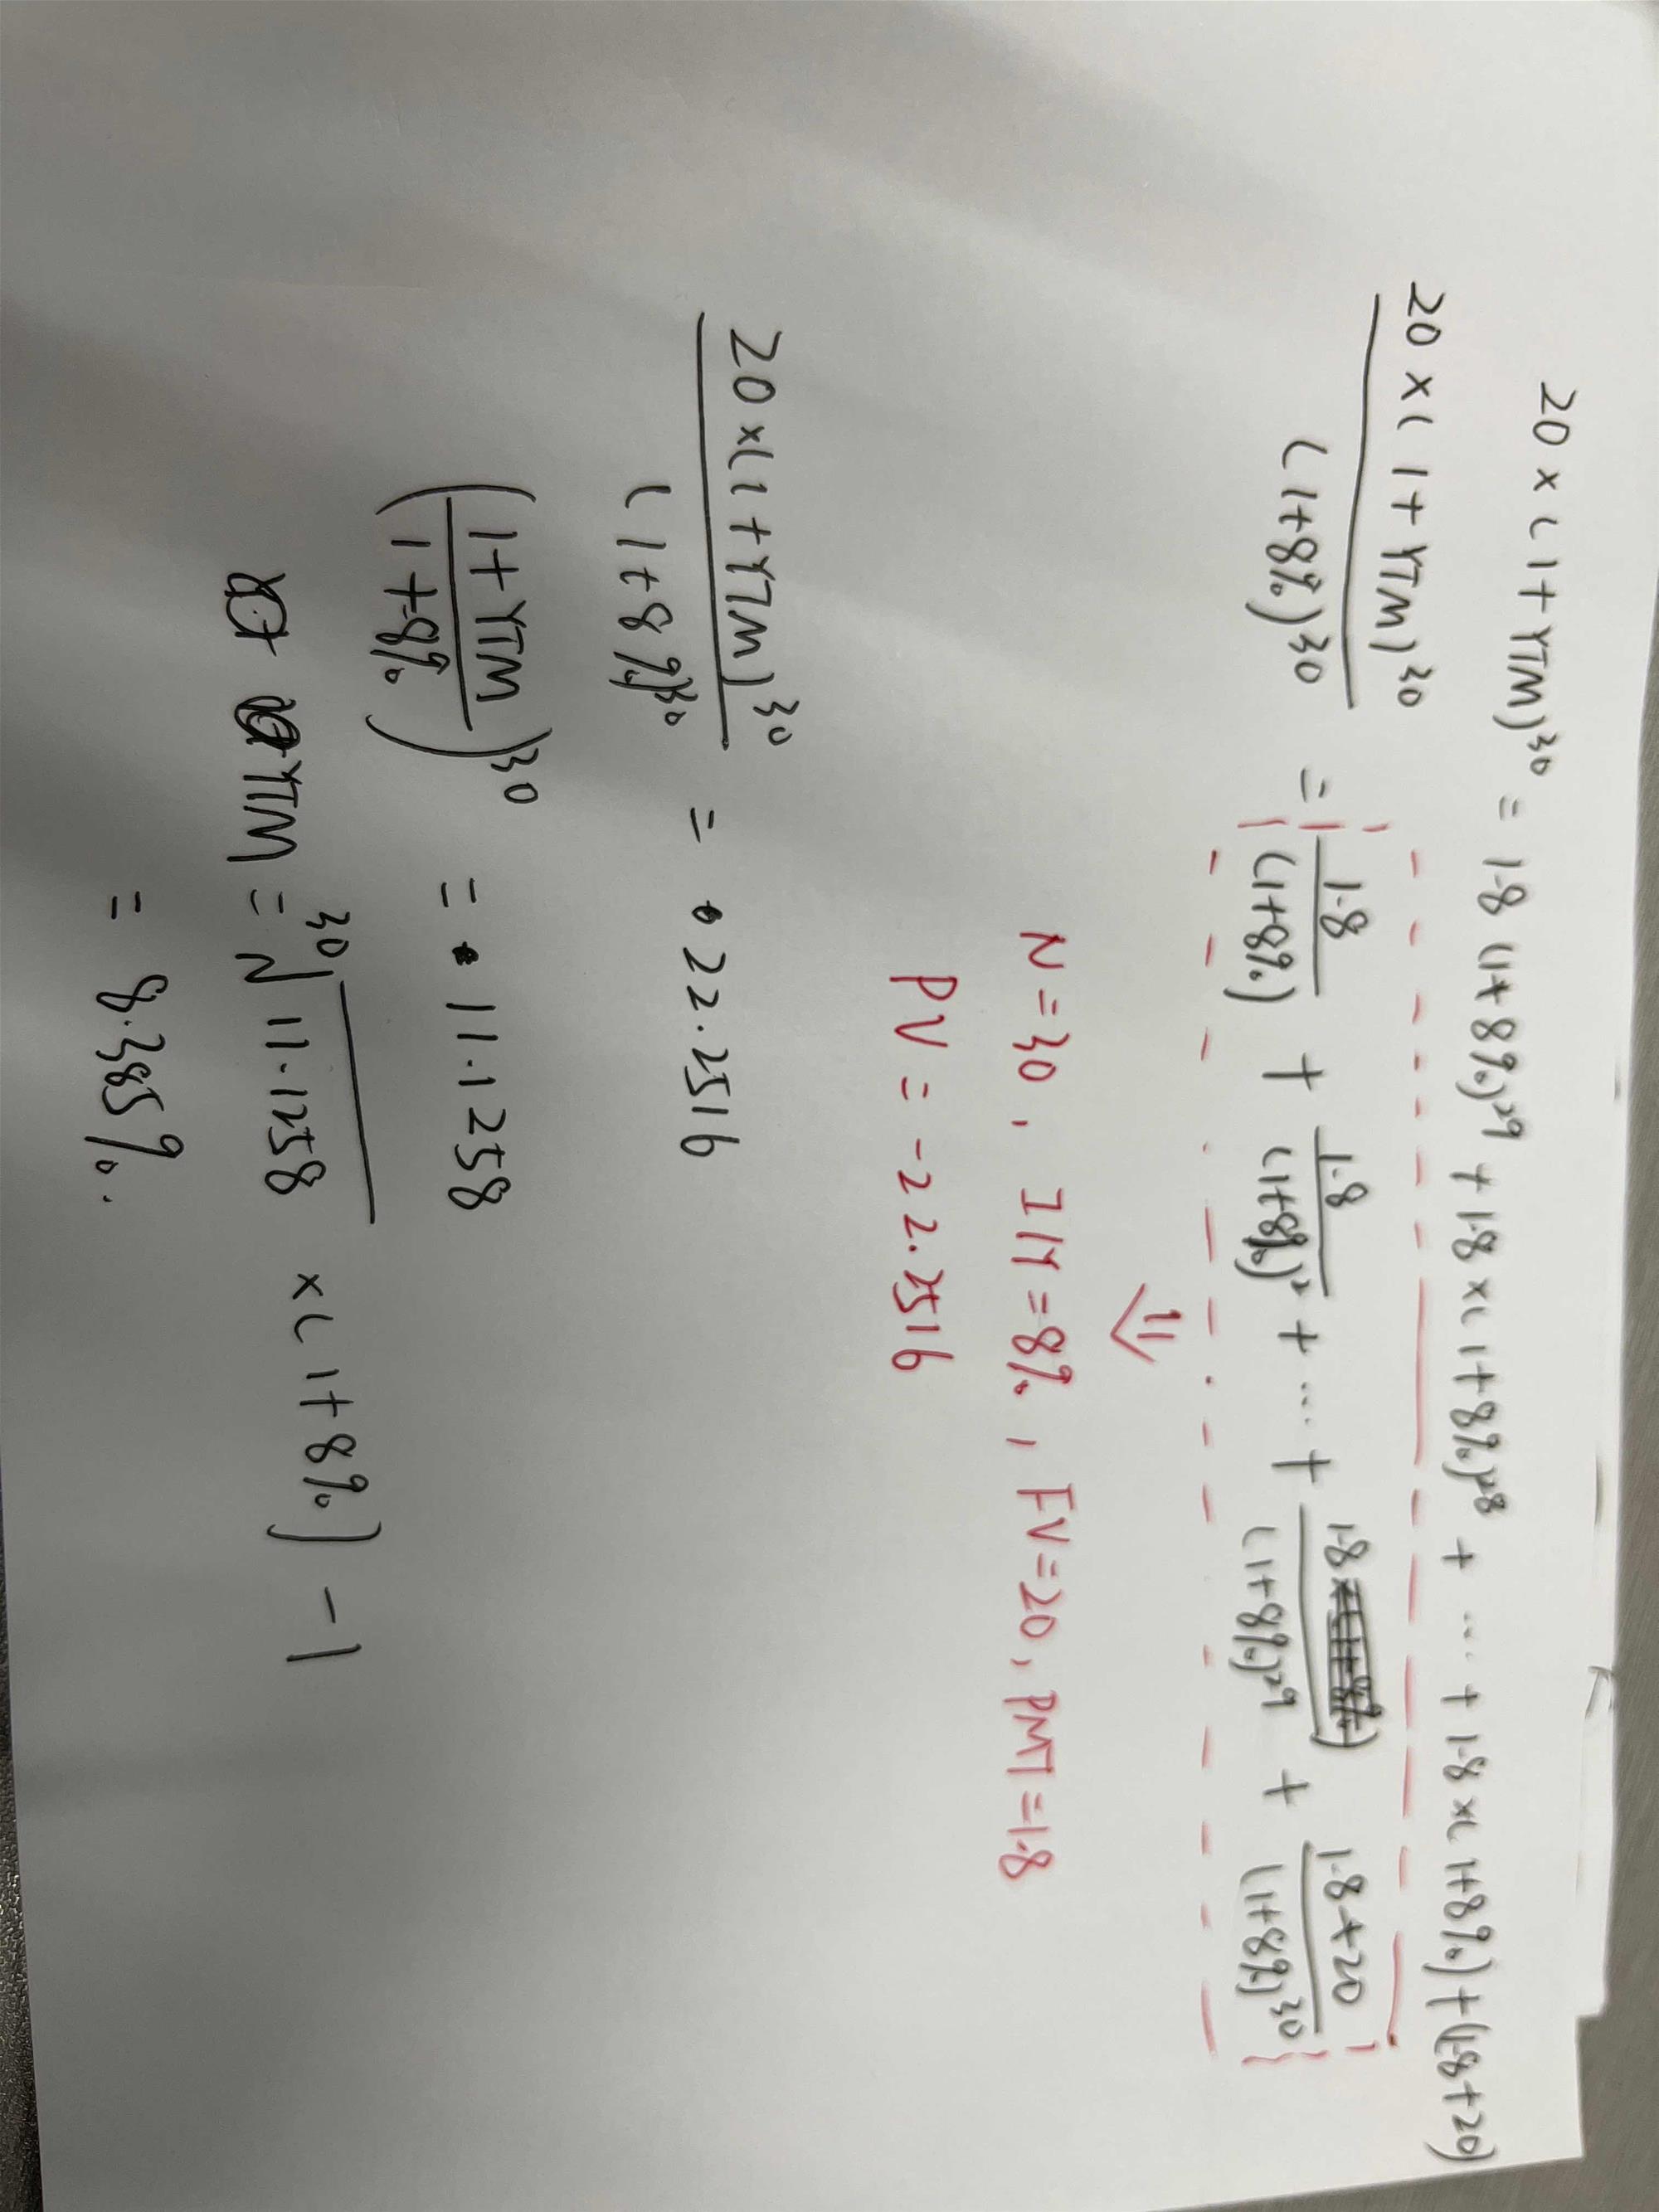 20 × (1 + YTM)³⁰ = 1.8 (1+8%)²⁹ + 1.8 × (1+8%)²⁸ + ... + 1.8 × (1+8%) + (1.8+20)
20 × (1 + YTM)³⁰ / (1+8%)³⁰ = 1.8 / (1+8%) + 1.8 / (1+8%)² + ... + 1.8 / (1+8%)²⁹ + 1.8+20 / (1+8%)³⁰
⇓
N = 30, I/Y = 8%, FV = 20, PMT = 1.8
PV = -22.2516
20 × (1 + YTM)³⁰ / (1+8%)³⁰ = 22.2516
(1+YTM / 1+8%)³⁰ = 11.1258
YTM = ³⁰√11.1258 × (1+8%) - 1
= 8.385%.